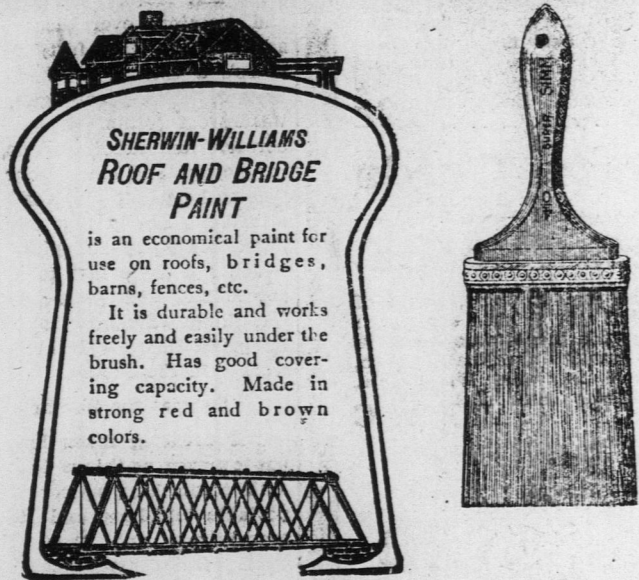 SHERWIN-WILLIAMS
ROOF AND BRIDGE
PAINT
is an economical paint for
use on roofs, bridges,
barns, fences, etc.
It is durable and works
freely and easily under the
brush. Has good cover-
ing capacity. Made in
strong red and brown
colors.
SUPER